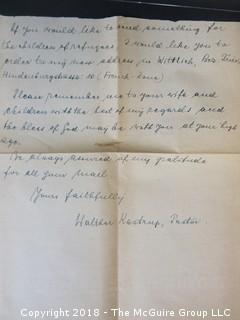 If you would like to send something for
the children of refugees I would like you to
order to my new address in Wittlich, Bez. Trier,
Hindenburgstrasse 10 (French-Zone)
Please remember me to your wife and
children with the best of my regards and
the bless of God may be with you at your high
age.
Be always assured of my gratitude
for all your mail.
Yours faithfully
Walther Pastor.
Copyright 2018 - The McGuire Group LLC